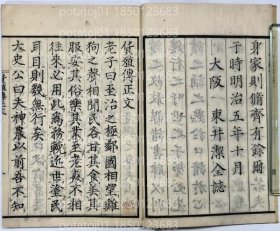 身家則脩齊有餘爾
于時明治五年十月
大阪 東井潔全誌
貨殖傳正文
老子曰至治之極鄰國相望雞
狗之聲相聞民各甘其食美其
服安其俗樂其業至老死不相
往來必用此爲務輓近世塗民
耳目則幾無行矣
太史公曰夫神農以前吾不知
potatoj01 1850123660